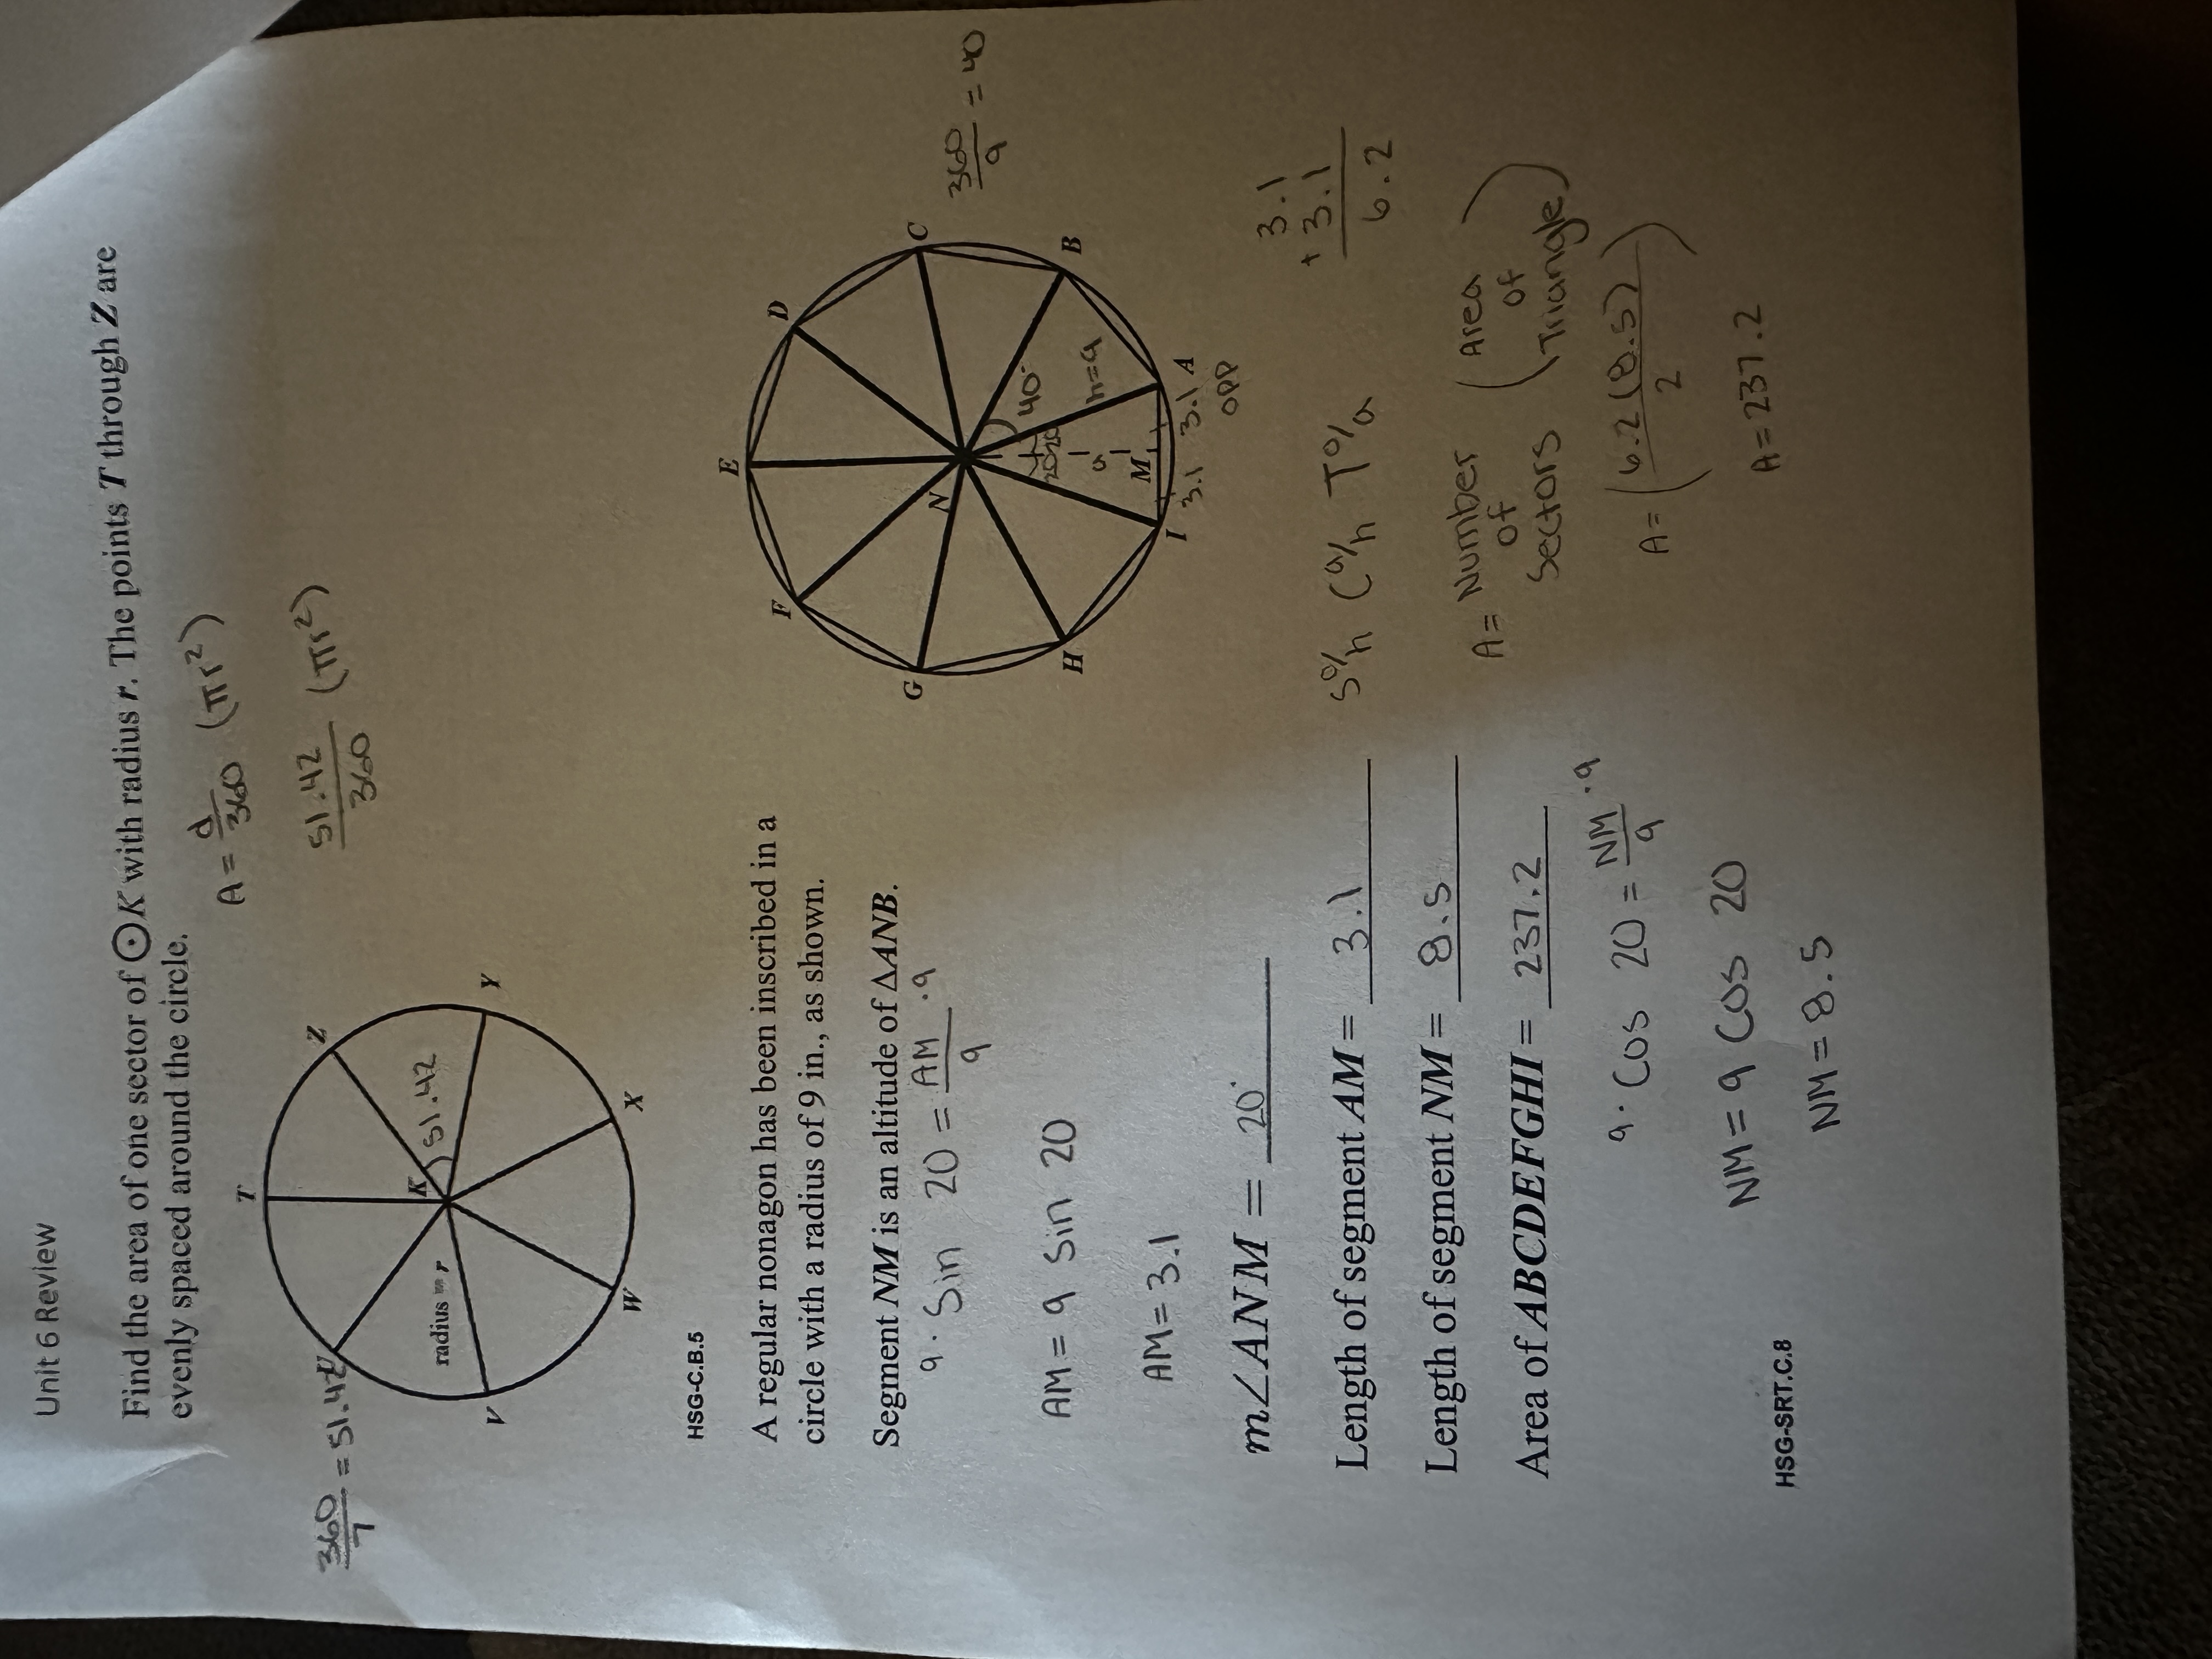 Unit 6 Review
Find the area of one sector of ⊙K with radius r. The points T through Z are
evenly spaced around the circle.
A = d/360 (πr²)
360/7 = 51.42
51.42/360 (πr²)
T
Z
U
K
51.42
radius = r
Y
V
X
W
HSG-C.B.5
A regular nonagon has been inscribed in a
circle with a radius of 9 in., as shown.
Segment NM is an altitude of ΔANB.
360/9 = 40
E
D
F
C
N
G
40°
B
h=9
H
M
I
A
3.1
3.1
OPP
9 · Sin 20 = AM/9 · 9
AM = 9 Sin 20
AM = 3.1
3.1
+ 3.1
6.2
m∠ANM = 20°
Length of segment AM = 3.1
S o/h C a/h T o/a
Length of segment NM = 8.5
Area of ABCDEFGHI = 237.2
A = Number of Sectors (Area of Triangle)
A = (6.2(8.5)/2)
A = 237.2
9 · Cos 20 = NM/9 · 9
NM = 9 Cos 20
NM = 8.5
HSG-SRT.C.8